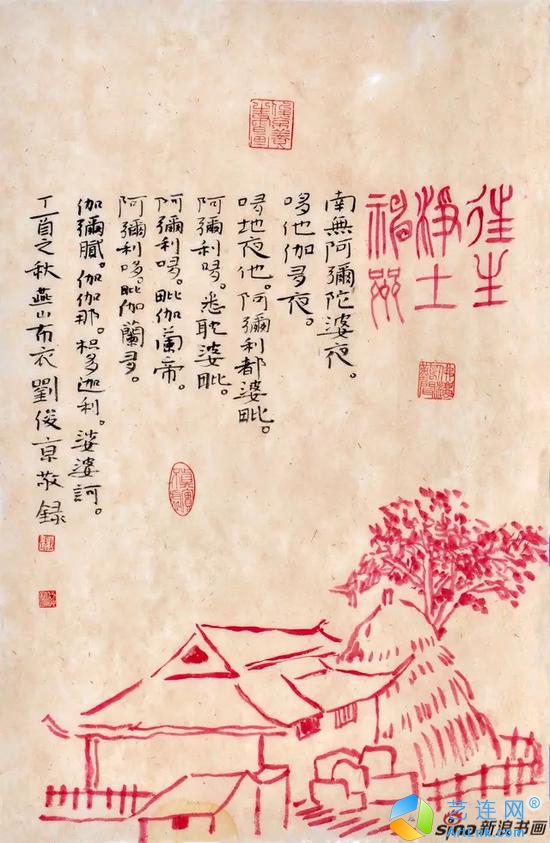 往生
淨土
神咒
南無阿彌陀婆夜。
哆他伽多夜。
哆地夜他。阿彌利都婆毗。
阿彌利哆。悉耽婆毗。
阿彌利哆。毗伽蘭帝。
阿彌利哆。毗伽蘭多。
伽彌膩。伽伽那。枳多迦利。娑婆訶。
丁酉之秋 燕山布衣 劉俊京敬錄
艺连网®
sina新浪书画